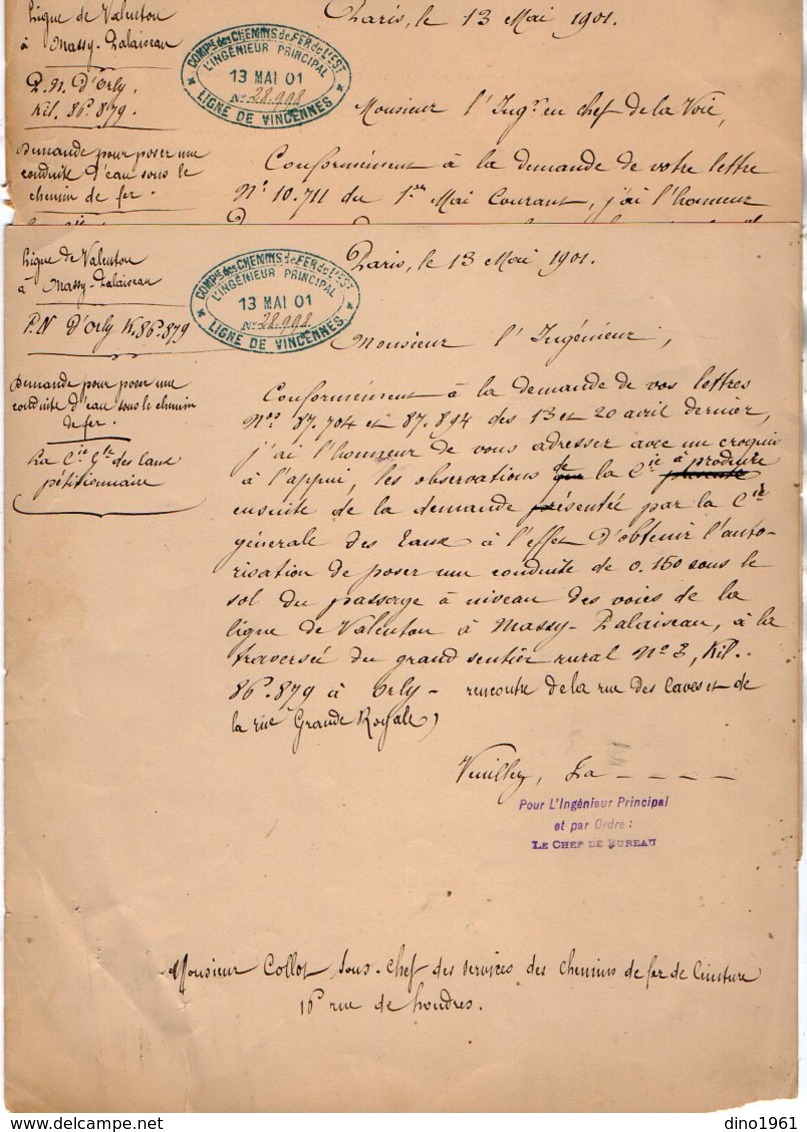 Ligne de Valenton
à Massy-Palaiseau
P.N. d'Orly.
Kil. 86ᵖ.879.
Demande pour poser une
conduite d'eau sous le
chemin de fer.
COMPIE des CHEMINS de FER de L'EST
L'INGÉNIEUR PRINCIPAL
13 MAI 01
No 28.998
LIGNE DE VINCENNES
Paris, le 13 Mai 1901.
Monsieur l'Ingr en chef de la Voie,
Conformément à la demande de votre lettre
No 10.711 du 1er Mai Courant, j'ai l'honneur
Ligne de Valenton
à Massy-Palaiseau
P.N d'Orly K.86ᵖ.879
Demande pour poser une
conduite d'eau sous le chemin
de fer.
La Cie Gle des Eaux
pétitionnaire
COMPIE des CHEMINS de FER de L'EST
L'INGÉNIEUR PRINCIPAL
13 MAI 01
No 28.998
LIGNE DE VINCENNES
Paris, le 13 Mai 1901.
Monsieur l'Ingénieur,
Conformément à la demande de vos lettres
Nos 87.704 et 87.894 des 13 et 20 avril dernier,
j'ai l'honneur de vous adresser avec un croquis
à l'appui, les observations de la Cie à produire
ensuite de la demande présentée par la Cie
générale des Eaux à l'effet d'obtenir l'auto-
risation de poser une conduite de 0.150 sous le
sol du passage à niveau des voies de la
ligne de Valenton à Massy-Palaiseau, à la
traversée du grand sentier rural No 3, Kil.
86ᵖ.879 à Orly - rencontre de la rue des Caves et de
la rue Grande Royale)
Veuillez, La - - - -
Pour L'Ingénieur Principal
et par Ordre :
LE CHEF DE BUREAU
Monsieur Collot, Sous-Chef des services des chemins de fer de Ceinture
16ᵖ rue de Londres.
dino1961